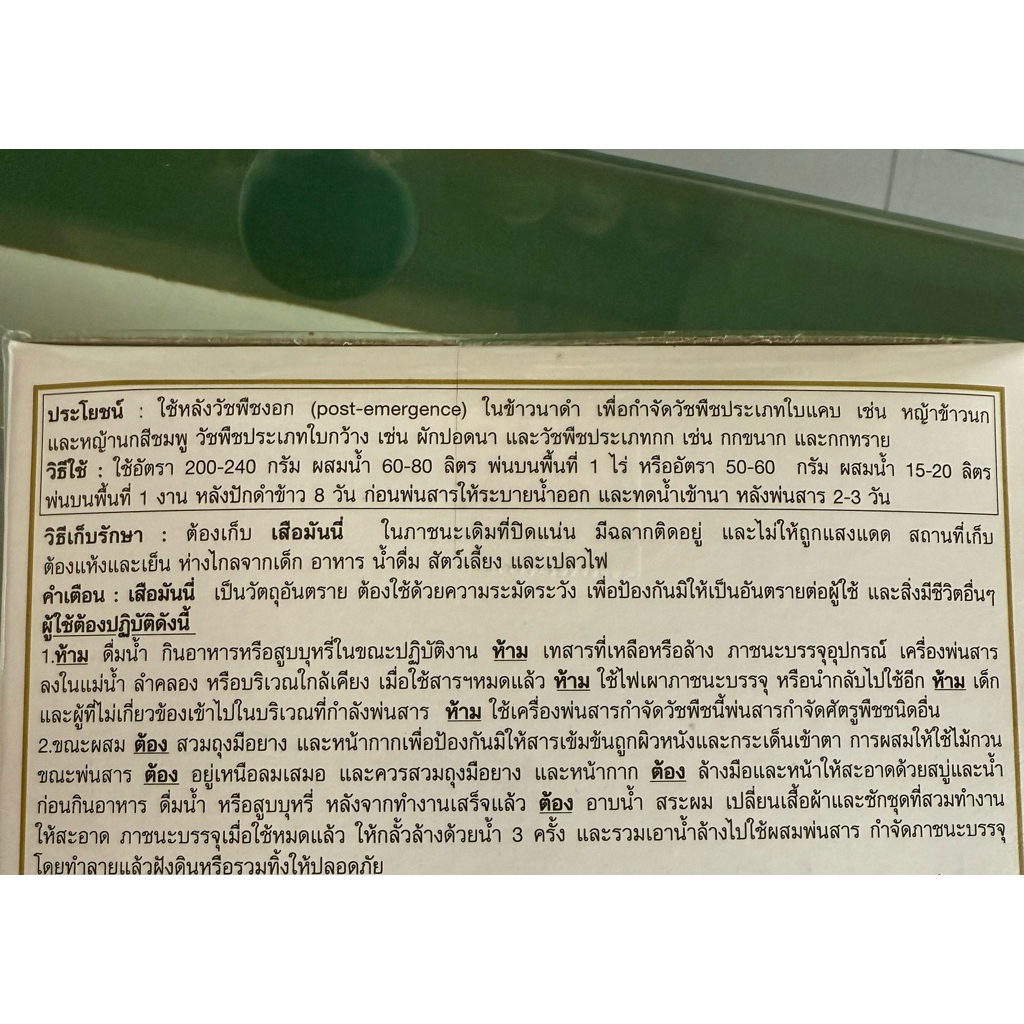 ประโยชน์ : ใช้หลังวัชพืชงอก (post-emergence) ในข้าวนาดำ เพื่อกำจัดวัชพืชประเภทใบแคบ เช่น หญ้าข้าวนก
และหญ้านกสีชมพู วัชพืชประเภทใบกว้าง เช่น ผักปอดนา และวัชพืชประเภทกก เช่น กกขนาก และกกทราย
วิธีใช้ : ใช้อัตรา 200-240 กรัม ผสมน้ำ 60-80 ลิตร พ่นบนพื้นที่ 1 ไร่ หรืออัตรา 50-60 กรัม ผสมน้ำ 15-20 ลิตร
พ่นบนพื้นที่ 1 งาน หลังปักดำข้าว 8 วัน ก่อนพ่นสารให้ระบายน้ำออก และทดน้ำเข้านา หลังพ่นสาร 2-3 วัน
วิธีเก็บรักษา : ต้องเก็บ เสือมันนี่ ในภาชนะเดิมที่ปิดแน่น มีฉลากติดอยู่ และไม่ให้ถูกแสงแดด สถานที่เก็บ
ต้องแห้งและเย็น ห่างไกลจากเด็ก อาหาร น้ำดื่ม สัตว์เลี้ยง และเปลวไฟ
คำเตือน : เสือมันนี่ เป็นวัตถุอันตราย ต้องใช้ด้วยความระมัดระวัง เพื่อป้องกันมิให้เป็นอันตรายต่อผู้ใช้ และสิ่งมีชีวิตอื่นๆ
ผู้ใช้ต้องปฏิบัติดังนี้
1.ห้าม ดื่มน้ำ กินอาหารหรือสูบบุหรี่ในขณะปฏิบัติงาน ห้าม เทสารที่เหลือหรือล้าง ภาชนะบรรจุอุปกรณ์ เครื่องพ่นสาร
ลงในแม่น้ำ ลำคลอง หรือบริเวณใกล้เคียง เมื่อใช้สารฯหมดแล้ว ห้าม ใช้ไฟเผาภาชนะบรรจุ หรือนำกลับไปใช้อีก ห้าม เด็ก
และผู้ที่ไม่เกี่ยวข้องเข้าไปในบริเวณที่กำลังพ่นสาร ห้าม ใช้เครื่องพ่นสารกำจัดวัชพืชนี้พ่นสารกำจัดศัตรูพืชชนิดอื่น
2.ขณะผสม ต้อง สวมถุงมือยาง และหน้ากากเพื่อป้องกันมิให้สารเข้มข้นถูกผิวหนังและกระเด็นเข้าตา การผสมให้ใช้ไม้กวน
ขณะพ่นสาร ต้อง อยู่เหนือลมเสมอ และควรสวมถุงมือยาง และหน้ากาก ต้อง ล้างมือและหน้าให้สะอาดด้วยสบู่และน้ำ
ก่อนกินอาหาร ดื่มน้ำ หรือสูบบุหรี่ หลังจากทำงานเสร็จแล้ว ต้อง อาบน้ำ สระผม เปลี่ยนเสื้อผ้าและซักชุดที่สวมทำงาน
ให้สะอาด ภาชนะบรรจุเมื่อใช้หมดแล้ว ให้กลั้วล้างด้วยน้ำ 3 ครั้ง และรวมเอาน้ำล้างไปใช้ผสมพ่นสาร กำจัดภาชนะบรรจุ
โดยทำลายแล้วฝังดินหรือรวมทิ้งให้ปลอดภัย